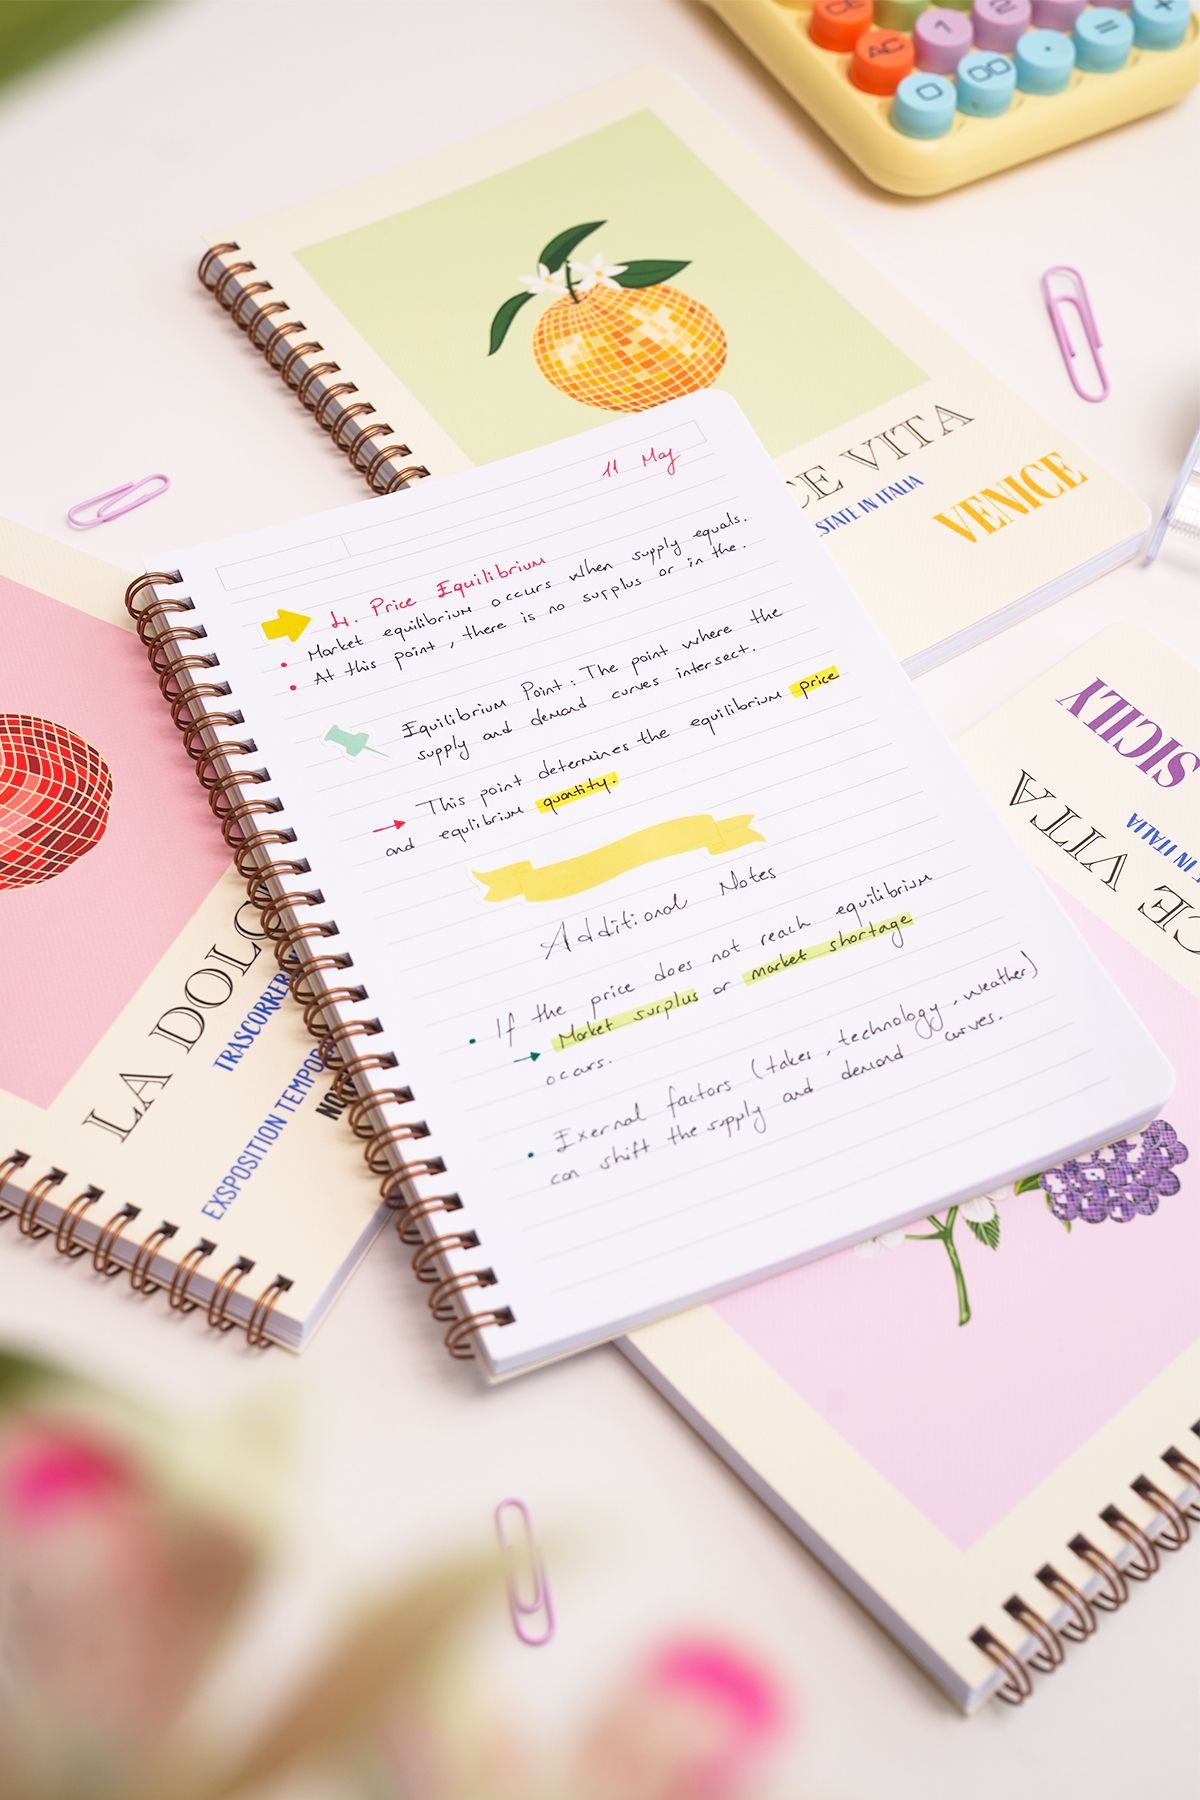 CE
AC
1
2
=
+
0
00
.
CE VITA
STATE IN ITALIA
VENICE
11 May
4. Price Equilibrium
• Market equilibrium occurs when supply equals.
• At this point, there is no surplus or in the.
Equilibrium Point: The point where the
supply and demand curves intersect.
→ This point determines the equilibrium price
and equlibrium quantity.
Additional Notes
• If the price does not reach equilibrium
→ Market surplus or market shortage
occurs.
• Exernal factors (takes, technology, weather)
can shift the supply and demand curves.
LA DOLC
TRASCORRER
EXSPOSITION TEMPOR
SICILY
IN ITALIA
CE VITA